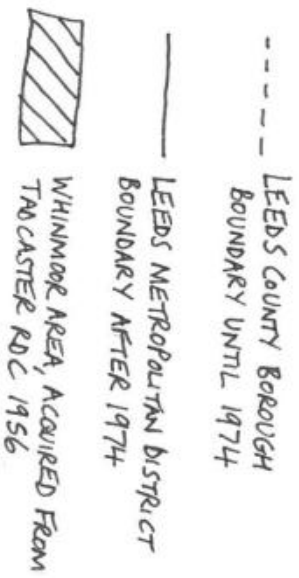 LEEDS COUNTY BOROUGH
BOUNDARY UNTIL 1974
LEEDS METROPOLITAN DISTRICT
BOUNDARY AFTER 1974
WHINMOOR AREA, ACQUIRED FROM
TADCASTER RDC 1956